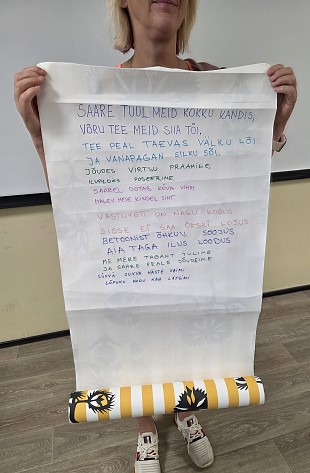 SAARE TUUL MEID KOKKU KANDIS,
VÕRU TEE MEID SIIA TÕI.
TEE PEAL TAEVAS VÄLKU LÕI
JA VANAPAGAN SILKU SÕI.
JÕUDES VIRTSU PRAAMILE
ILUPILDIS POSEERIME
SAAREL OOTAB KÕVA VIHM
MEIE KINDEL SIHT
VASTUVÕTT ON NAGU KODUS
SISSE EI SAA ÜKSKI LOJUS
BETOONIST ÕHKUV SOOJUS
AIA TAGA ILUS LOODUS
ME MERE TAGANT TULIME
JA SAARE PEALE JÕUDSIME
SUKKA HASTE
KODU KAA